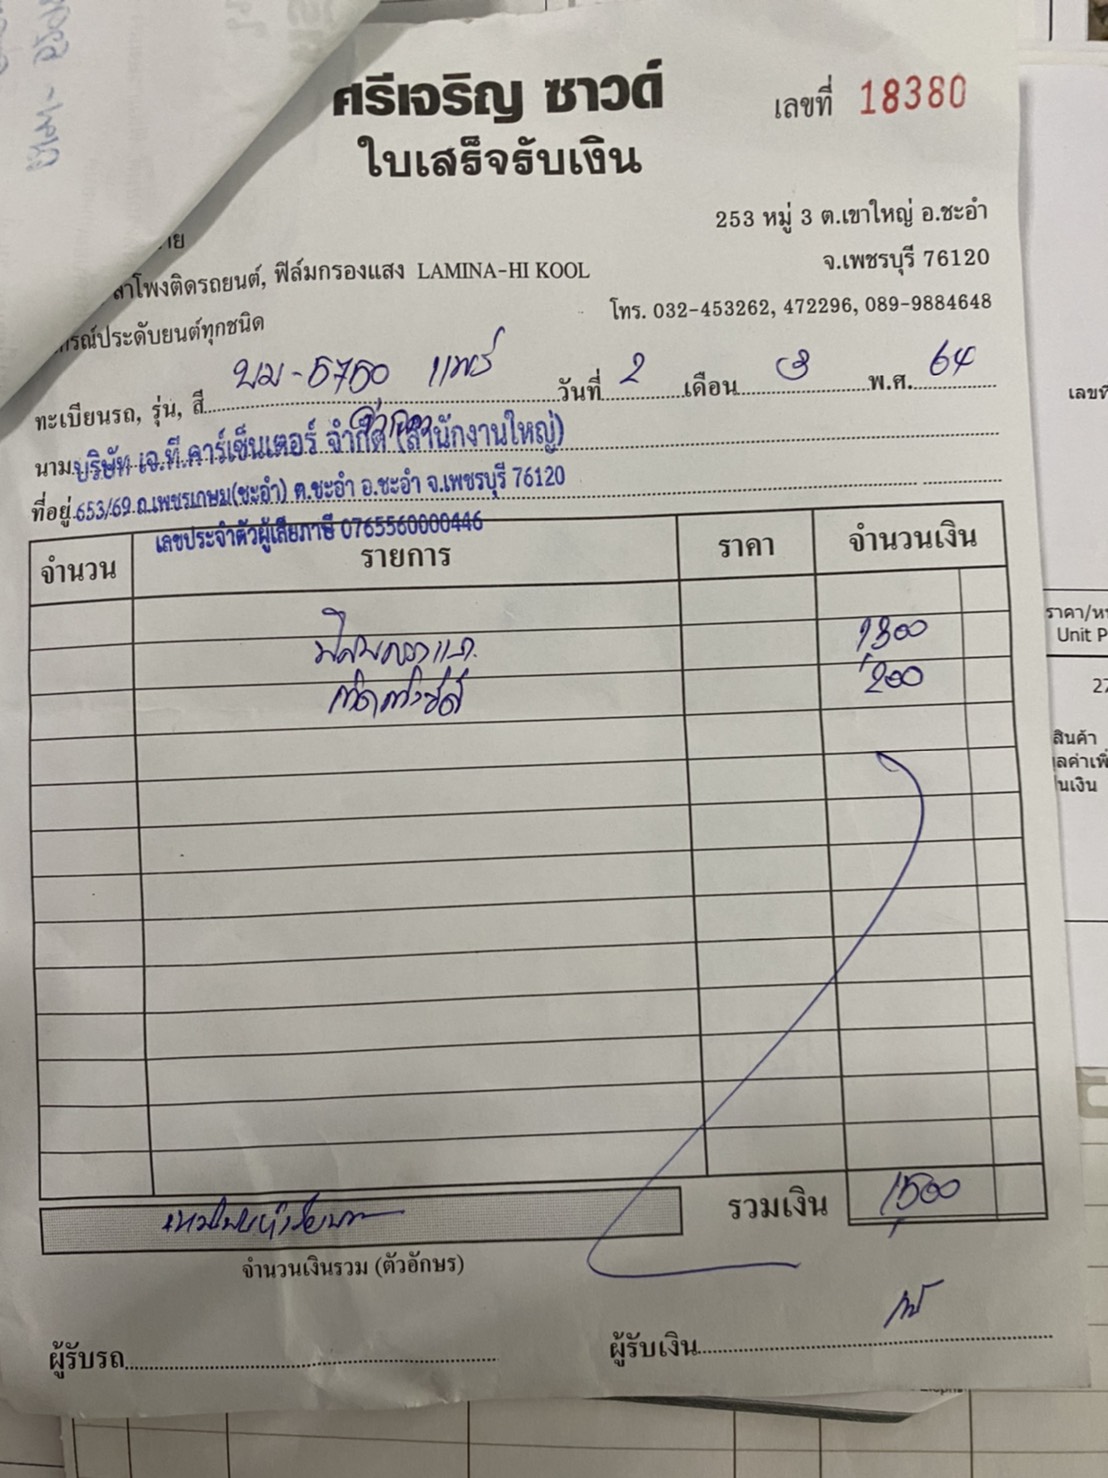 ศรีเจริญ ซาวด์
เลขที่ 18380
ใบเสร็จรับเงิน
253 หมู่ 3 ต.เขาใหญ่ อ.ชะอำ
จ.เพชรบุรี 76120
โทร. 032-453262, 472296, 089-9884648
ลำโพงติดรถยนต์, ฟิล์มกรองแสง LAMINA-HI KOOL
ประดับยนต์ทุกชนิด
ทะเบียนรถ, รุ่น, สี บม-5750 วันที่ 2 เดือน 3 พ.ศ. 64
นาม บริษัท เจ.ที.คาร์เซ็นเตอร์ จำกัด (สำนักงานใหญ่)
ที่อยู่ 653/69 ถ.เพชรเกษม(ชะอำ) ต.ชะอำ อ.ชะอำ จ.เพชรบุรี 76120
เลขประจำตัวผู้เสียภาษี 0765560000446
จำนวน รายการ ราคา จำนวนเงิน
1300
200
รวมเงิน 1500
จำนวนเงินรวม (ตัวอักษร)
ผู้รับรถ
ผู้รับเงิน
เลขที่
ราคา/ห
Unit P
27
สินค้า